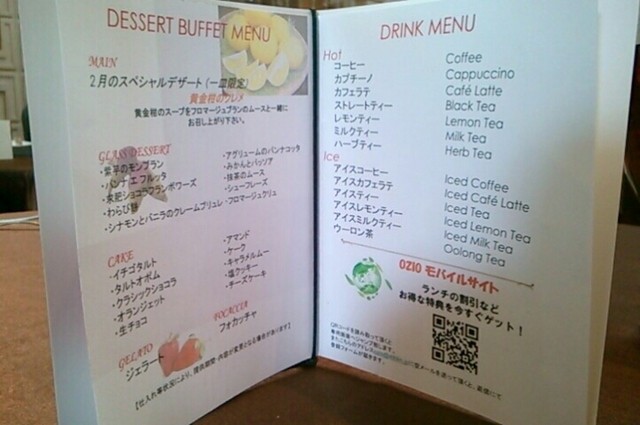 DESSERT BUFFET MENU
MAIN
2月のスペシャルデザート(一皿限定)
黄金柑のクレメ
黄金柑のスープをフロマージュブランのムースと一緒に
お召し上がり下さい。
GLASS DESSERT
・紫芋のモンブラン
・パンナ エ フルッタ
・求肥ショコラフランボワーズ
・わらび餅
・シナモンとバニラのクレームブリュレ
・アグリュームのパンナコッタ
・みかんとパッソア
・抹茶のムース
・シューフレーズ
・フロマージュクリュ
CAKE
・イチゴタルト
・タルトオポム
・クラシックショコラ
・オランジェット
・生チョコ
・アマンド
・ケーク
・キャラメルムー
・塩クッキー
・チーズケーキ
GELATO
・ジェラート
FOCACCIA
・フォカッチャ
【仕入れ等状況により、提供期間・内容が変更となる場合があります】
DRINK MENU
Hot
コーヒー Coffee
カプチーノ Cappuccino
カフェラテ Café Latte
ストレートティー Black Tea
レモンティー Lemon Tea
ミルクティー Milk Tea
ハーブティー Herb Tea
Ice
アイスコーヒー Iced Coffee
アイスカフェラテ Iced Café Latte
アイスティー Iced Tea
アイスレモンティー Iced Lemon Tea
アイスミルクティー Iced Milk Tea
ウーロン茶 Oolong Tea
OZIO モバイルサイト
ランチの割引など
お得な特典を今すぐゲット!
QRコードを読み取って頂く